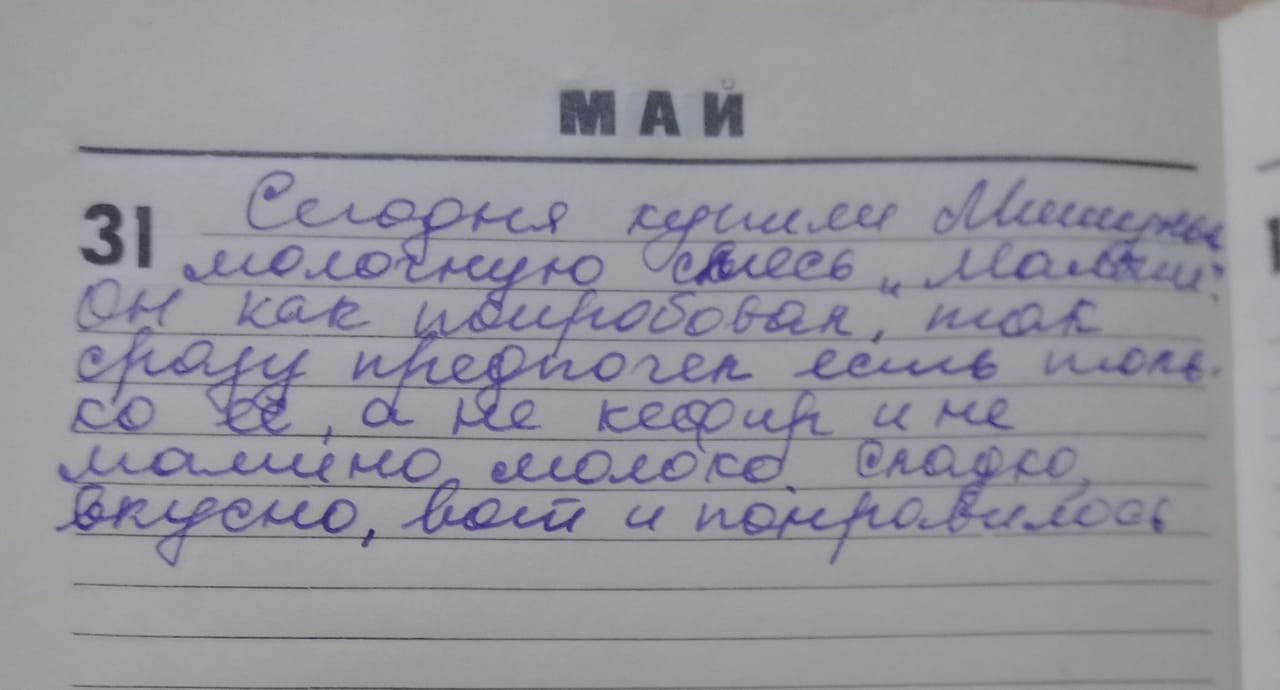 МАЙ
31 Сегодня купили Мишутке
молочную смесь „Малыш".
Он как попробовал, так
сразу предпочел есть толь-
ко ее, а не кефир и не
мамино молоко. Сладко,
вкусно, вот и понравилось